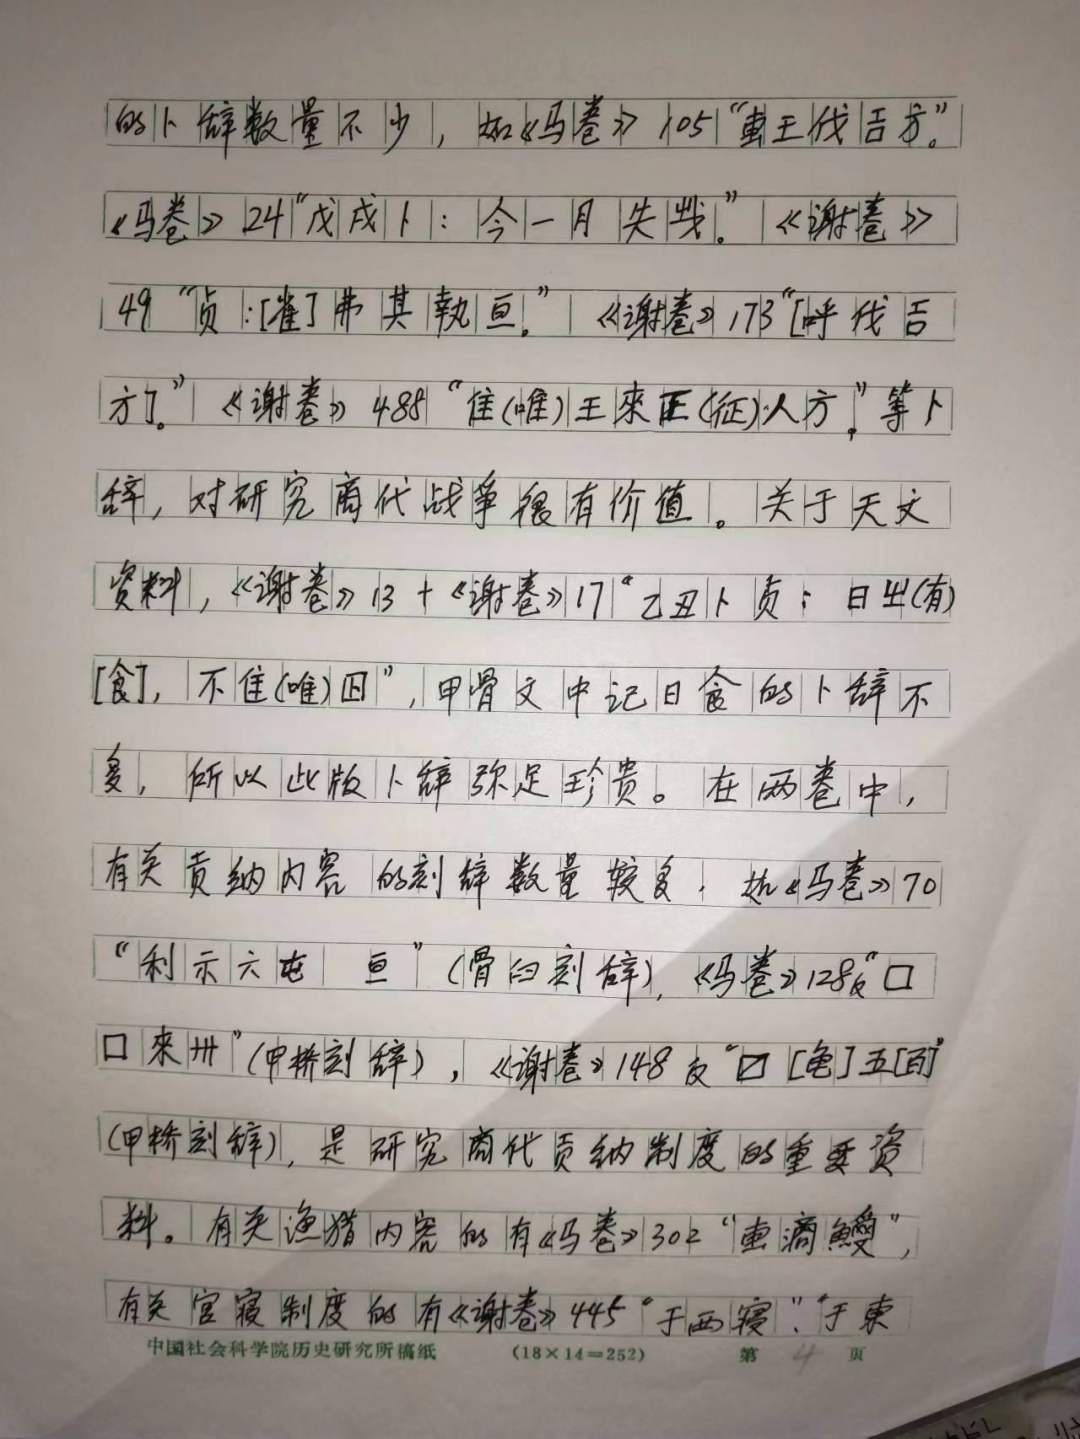 的卜辞数量不少，如《马卷》105“叀王伐𢀛方。”
《马卷》24“戊戌卜：今一月失𢦏。”《谢卷》
49“贞：[雀]弗其執亘。”《谢卷》173“[呼伐𢀛
方]。”《谢卷》488“隹(唯)王來正(征)人方。”等卜
辞，对研究商代战争很有价值。关于天文
资料，《谢卷》13+《谢卷》17“乙丑卜贞：日㞢(有)
[食]，不隹(唯)囚”，甲骨文中记日食的卜辞不
多，所以此版卜辞弥足珍贵。在两卷中，
有关贡纳内容的刻辞数量较多，如《马卷》70
“利示六屯 亘”(骨臼刻辞)，《马卷》128反“□
□來卅”(甲桥刻辞)，《谢卷》148反“☑[龟]五[百]”
(甲桥刻辞)，是研究商代贡纳制度的重要资
料。有关渔猎内容的有《马卷》302“叀滴”，
有关宫寝制度的有《谢卷》445“于西寝”、“于東
中国社会科学院历史研究所稿纸 (18×14=252) 第4页